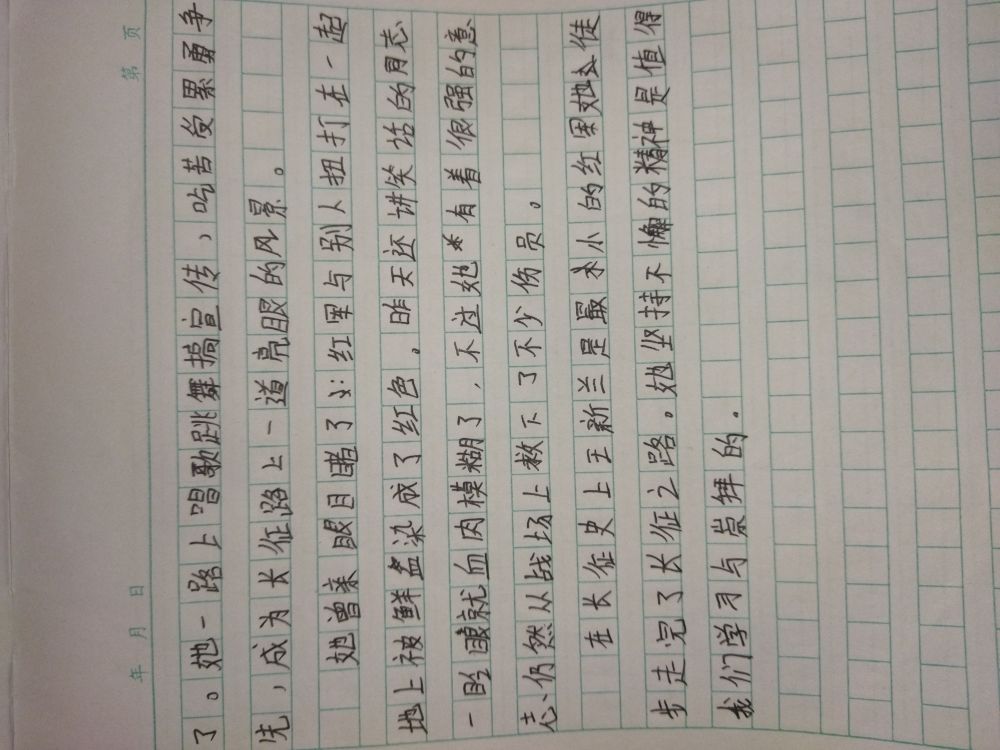 第 页
年 月 日
了。她一路上唱歌跳舞搞宣传，吃苦受累勇争
先，成为长征路上一道亮眼的风景。
她曾亲眼目睹了红军与别人扭打在一起
地上被鲜血染成了红色。昨天还讲笑话的同志
一眨眼就血肉模糊了，不过她有着很强的意
志，仍然从战场上救下了不少伤员。
在长征史上王新兰是最小的红军她徒
步走完了长征之路。她坚持不懈的精神是值得
我们学习与崇拜的。